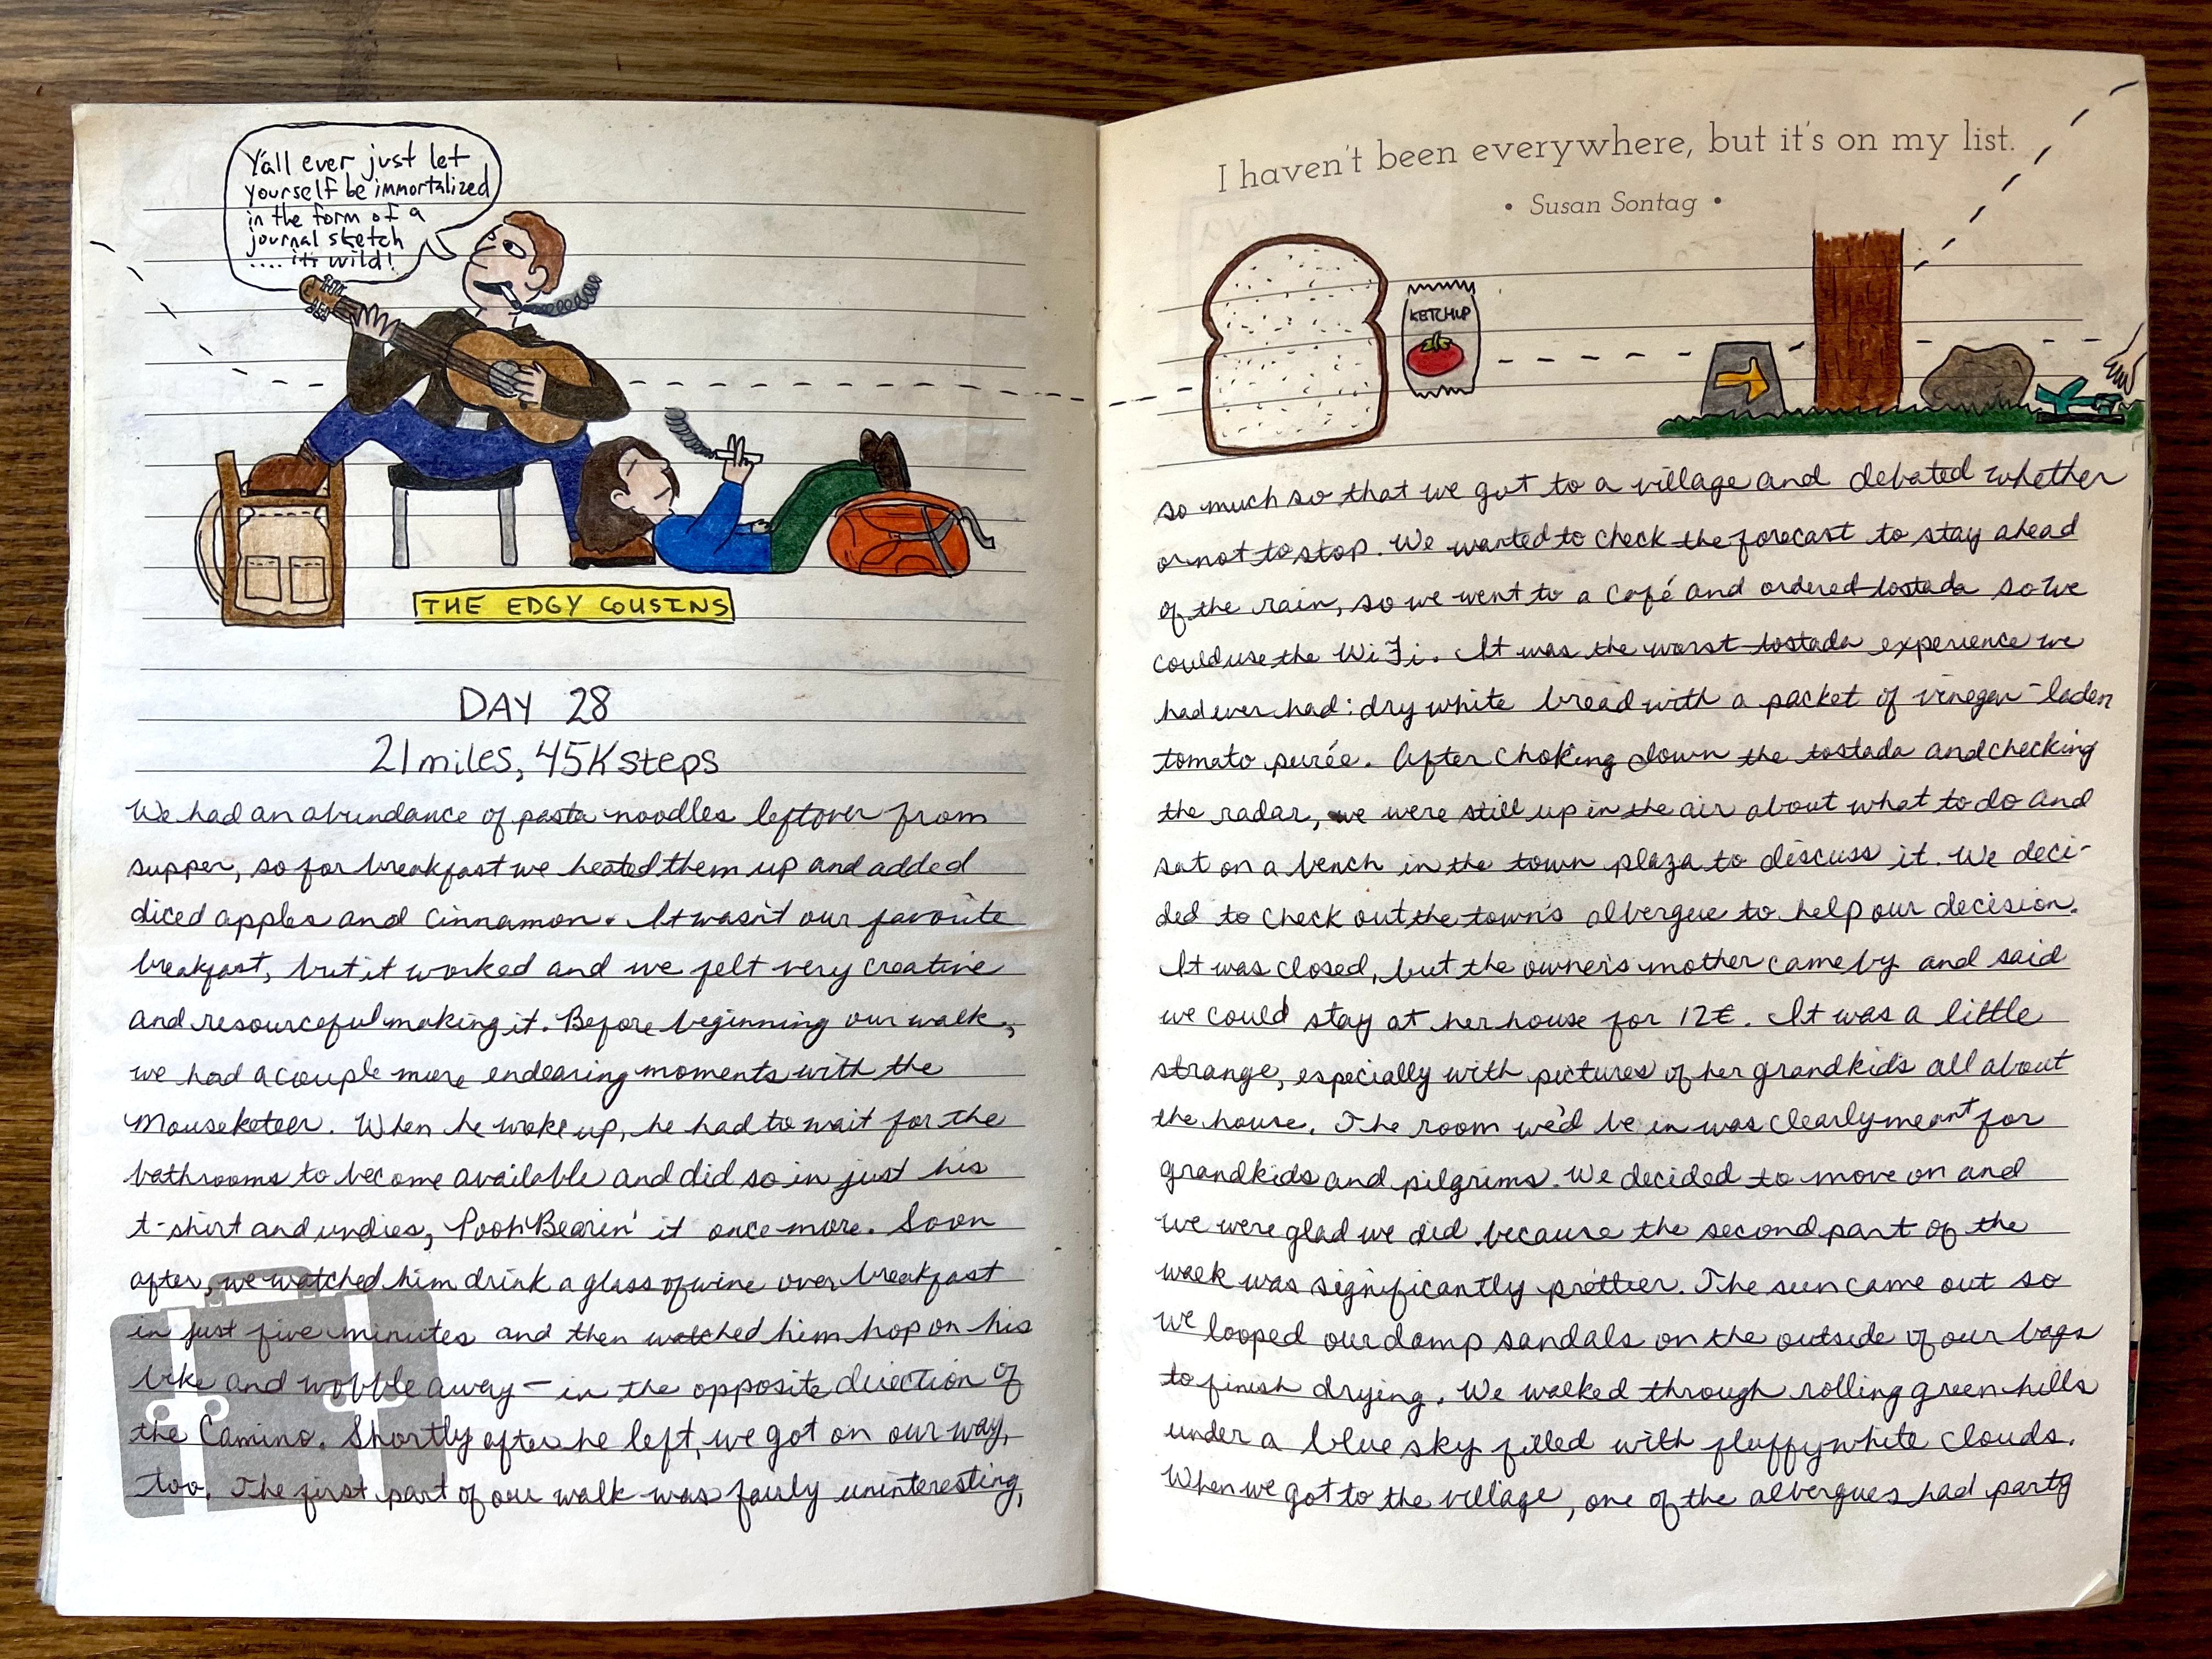 Y'all ever just let
yourself be immortalized
in the form of a
journal sketch
.... it's wild!
THE EDGY COUSINS
DAY 28
21 miles, 45K steps
We had an abundance of pasta noodles leftover from
supper, so for breakfast we heated them up and added
diced apples and cinnamon. It wasn't our favorite
breakfast, but it worked and we felt very creative
and resourceful making it. Before beginning our walk,
we had a couple more endearing moments with the
Mouseketeer. When he woke up, he had to wait for the
bathrooms to become available and did so in just his
t-shirt and undies, Pooh Bearin' it once more. Soon
after, we watched him drink a glass of wine over breakfast
in just five minutes and then watched him hop on his
bike and wobble away — in the opposite direction of
the Camino. Shortly after he left, we got on our way,
too. The first part of our walk was fairly uninteresting,
I haven't been everywhere, but it's on my list.
• Susan Sontag •
KETCHUP
so much so that we got to a village and debated whether
or not to stop. We wanted to check the forecast to stay ahead
of the rain, so we went to a café and ordered tostada so we
could use the WiFi. It was the worst tostada experience we
had ever had: dry white bread with a packet of vinegar-laden
tomato purée. After choking down the tostada and checking
the radar, we were still up in the air about what to do and
sat on a bench in the town plaza to discuss it. We deci-
ded to check out the town's albergue to help our decision.
It was closed, but the owner's mother came by and said
we could stay at her house for 12€. It was a little
strange, especially with pictures of her grandkids all about
the house. The room we'd be in was clearly meant for
grandkids and pilgrims. We decided to move on and
we were glad we did because the second part of the
walk was significantly prettier. The sun came out so
we looped our damp sandals on the outside of our bags
to finish drying. We walked through rolling green hills
under a blue sky filled with fluffy white clouds.
When we got to the village, one of the albergues had party